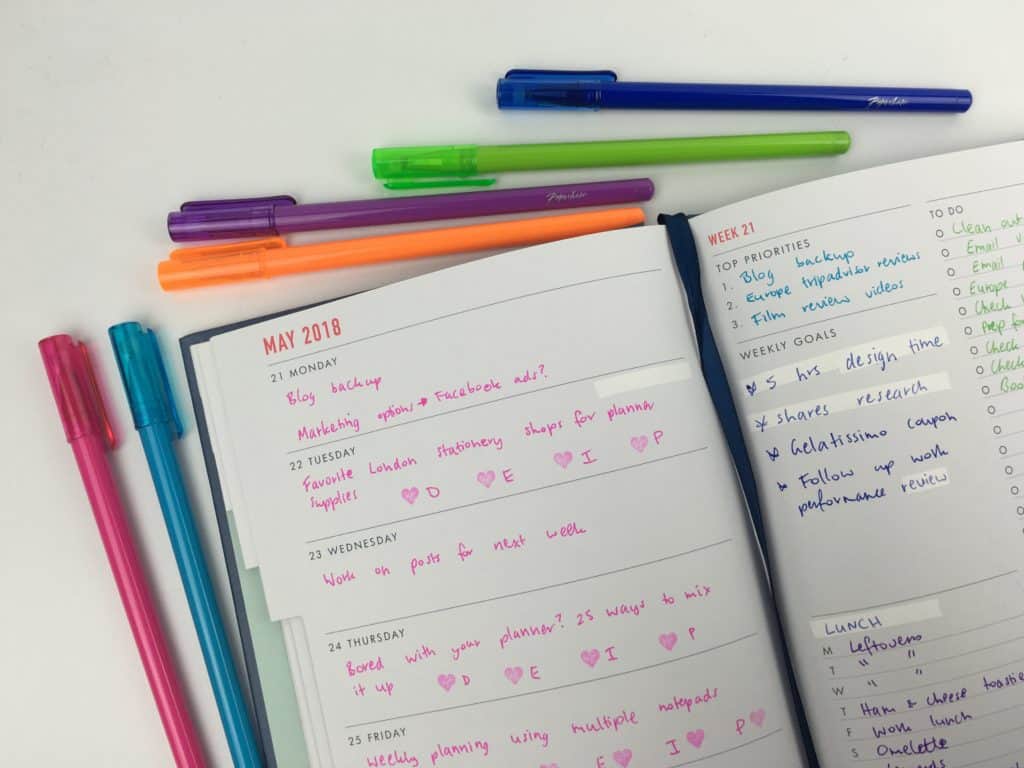 Paperchase
Paperchase
MAY 2018
21 MONDAY
Blog backup
Marketing options → Facebook ads?
22 TUESDAY
Favorite London stationery shops for planner
supplies D E I P
23 WEDNESDAY
Work on posts for next week
24 THURSDAY
Bored with your planner? 25 ways to mix
it up D E I P
25 FRIDAY
Weekly planning using multiple notepads
E I P
WEEK 21
TOP PRIORITIES
1. Blog backup
2. Europe tripadvisor reviews
3. Film review videos
WEEKLY GOALS
5 hrs design time
shares research
Gelatissimo coupon
Follow up work
performance review
LUNCH
M Leftovers
T " "
W " "
T Ham & cheese toastie
F Work lunch
S Omelette
TO DO
Clean out
Email
Email
Europe
Check
Prep for
Check
Check